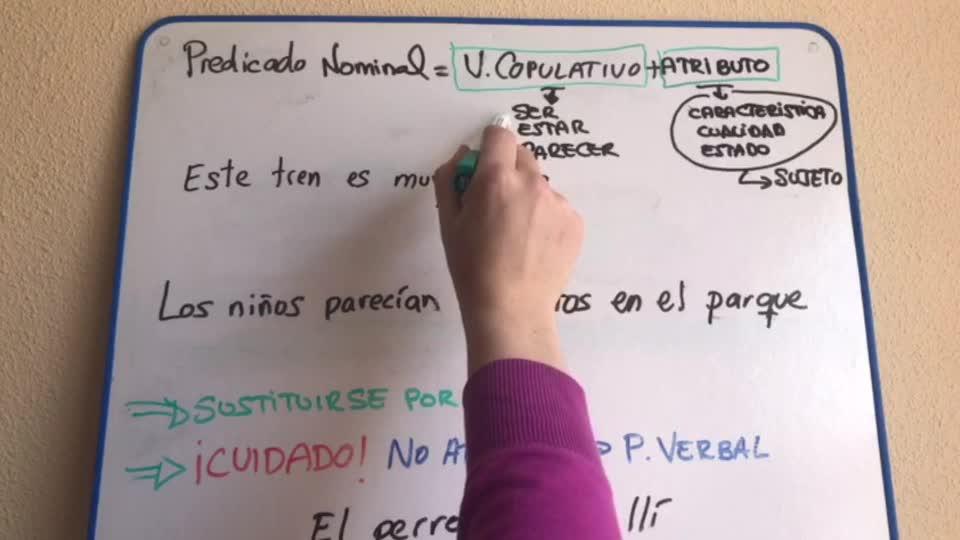 Predicado Nominal = V. COPULATIVO + ATRIBUTO
SER
ESTAR
PARECER
CARACTERÍSTICA
CUALIDAD
ESTADO
SUJETO
Este tren es muy
Los niños parecían en el parque
SUSTITUIRSE POR
¡CUIDADO! NO P. VERBAL
El